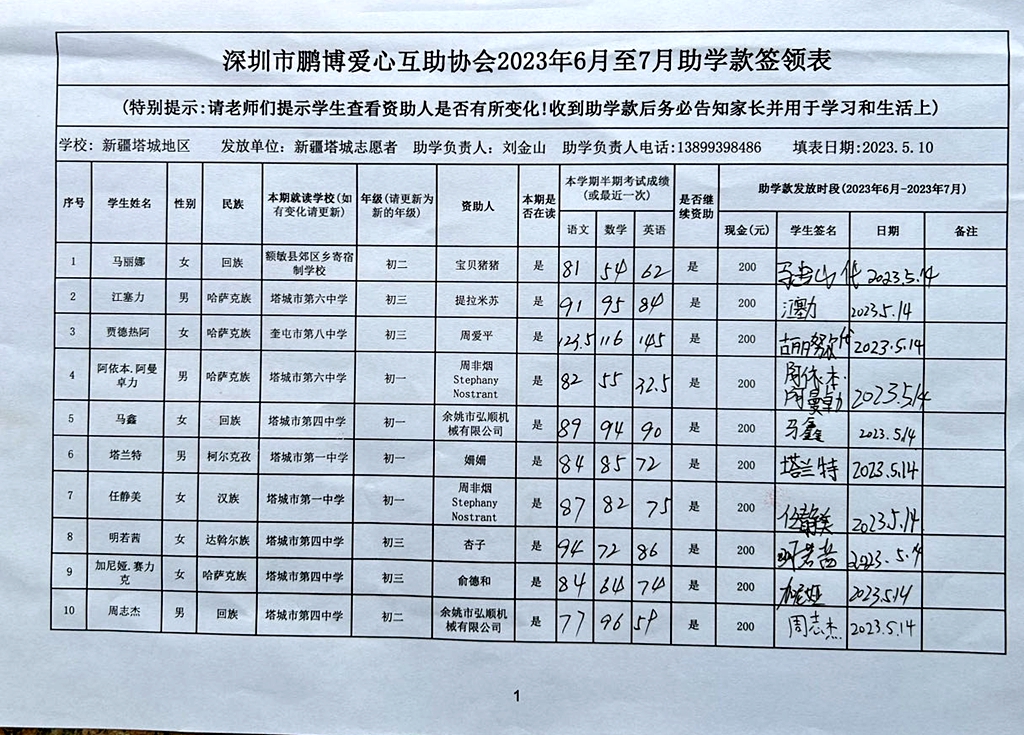 深圳市鹏博爱心互助协会2023年6月至7月助学款签领表
(特别提示:请老师们提示学生查看资助人是否有所变化!收到助学款后务必告知家长并用于学习和生活上)
学校: 新疆塔城地区 发放单位: 新疆塔城志愿者 助学负责人: 刘金山 助学负责人电话:13899398486 填表日期:2023.5.10
序号 学生姓名 性别 民族 本期就读学校(如有变化请更新) 年级(请更新为新的年级) 资助人 本期是否在读 本学期半期考试成绩(或最近一次) 是否继续资助 助学款发放时段(2023年6月-2023年7月)
语文 数学 英语 现金(元) 学生签名 日期 备注
1 马丽娜 女 回族 额敏县郊区乡寄宿制学校 初二 宝贝猪猪 是 81 54 62 是 200 代 2023.5.14
2 江塞力 男 哈萨克族 塔城市第六中学 初三 提拉米苏 是 91 95 84 是 200 2023.5.14
3 贾德热阿 女 哈萨克族 奎屯市第八中学 初三 周爱平 是 123.5 116 145 是 200 古丽努尔代 2023.5.14
4 阿依本.阿曼卓力 男 哈萨克族 塔城市第六中学 初一 周非烟 Stephany Nostrant 是 82 55 32.5 是 200 阿依本.阿曼卓力 2023.5.14
5 马鑫 女 回族 塔城市第四中学 初一 余姚市弘顺机械有限公司 是 89 94 90 是 200 马鑫 2023.5.14
6 塔兰特 男 柯尔克孜 塔城市第一中学 初一 姗姗 是 84 85 72 是 200 塔兰特 2023.5.14
7 任静美 女 汉族 塔城市第一中学 初一 周非烟 Stephany Nostrant 是 87 82 75 是 200 任静美 2023.5.14
8 明若茜 女 达斡尔族 塔城市第四中学 初三 杏子 是 94 72 86 是 200 明若茜 2023.5.14
9 加尼娅.赛力克 女 哈萨克族 塔城市第四中学 初三 俞德和 是 84 64 74 是 200 2023.5.14
10 周志杰 男 回族 塔城市第四中学 初二 余姚市弘顺机械有限公司 是 77 96 59 是 200 周志杰 2023.5.14
1